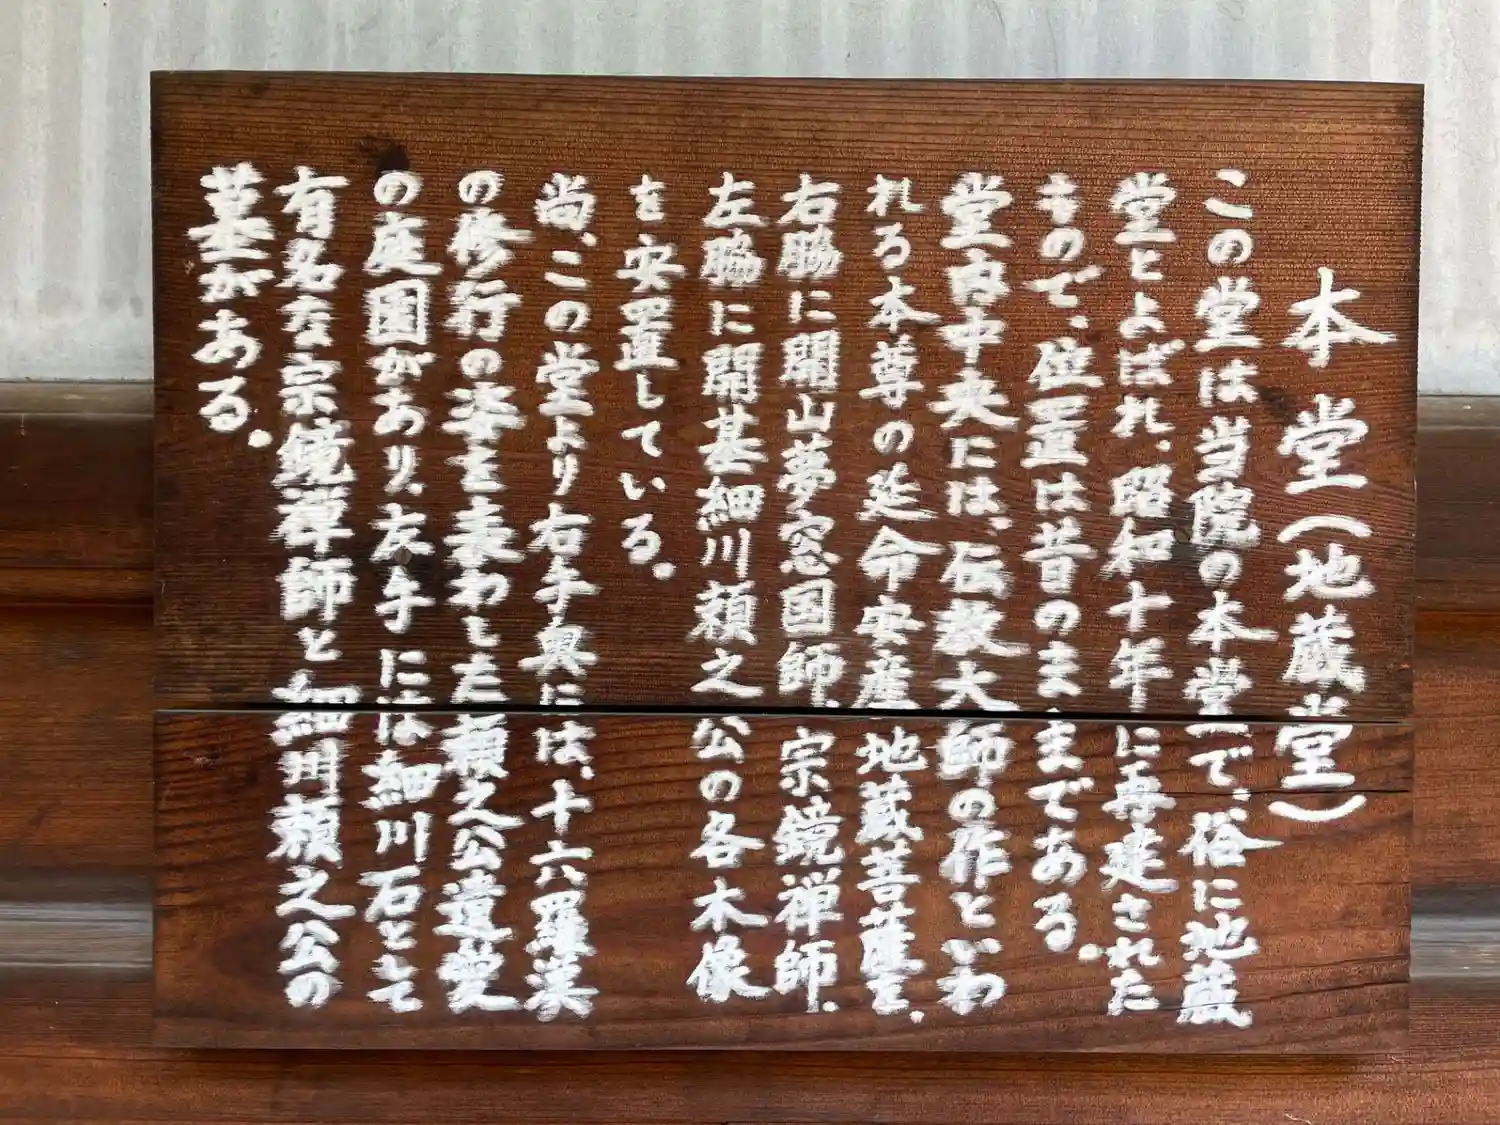 本堂（地蔵堂）
この堂は当院の本堂で、俗に地蔵
堂とよばれ、昭和十年に再建された
もので、位置は昔のままである。
堂内中央には、伝教大師の作といわ
れる本尊の延命安産地蔵菩薩を、
右脇に開山夢窓国師、宗鏡禅師、
左脇に開基細川頼之公の各木像
を安置している。
尚、この堂より右手奥には、十六羅漢
の修行の姿を表わした頼之公遺愛
の庭園があり、左手には細川石として
有名な宗鏡禅師と細川頼之公の
墓がある。